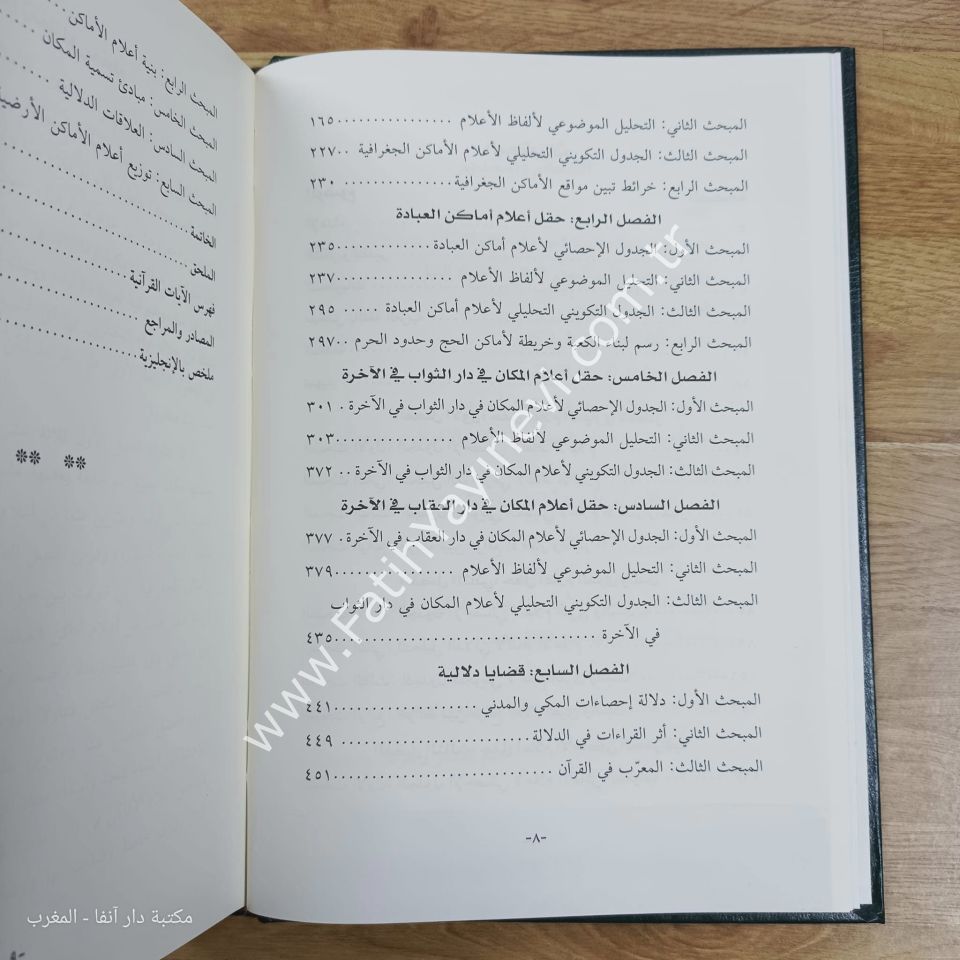 المبحث الثاني: التحليل الموضوعي لألفاظ الأعلام ................ ١٦٥
المبحث الثالث: الجدول التكويني التحليلي لأعلام الأماكن الجغرافية ..٢٢٧
المبحث الرابع: خرائط تبين مواقع الأماكن الجغرافية ............... ٢٣٠
الفصل الرابع: حقل أعلام أماكن العبادة
المبحث الأول: الجدول الإحصائي لأعلام أماكن العبادة ............. ٢٣٥
المبحث الثاني: التحليل الموضوعي لألفاظ الأعلام ................ ٢٣٧
المبحث الثالث: الجدول التكويني التحليلي لأعلام أماكن العبادة ..... ٢٩٥
المبحث الرابع: رسم لبناء الكعبة وخريطة لأماكن الحج وحدود الحرم ..٢٩٧
الفصل الخامس: حقل أعلام المكان في دار الثواب في الآخرة
المبحث الأول: الجدول الإحصائي لأعلام المكان في دار الثواب في الآخرة . ٣٠١
المبحث الثاني: التحليل الموضوعي لألفاظ الأعلام ................ ٣٠٣
المبحث الثالث: الجدول التكويني التحليلي لأعلام المكان في دار الثواب في الآخرة .. ٣٧٢
الفصل السادس: حقل أعلام المكان في دار العقاب في الآخرة
المبحث الأول: الجدول الإحصائي لأعلام المكان في دار العقاب في الآخرة . ٣٧٧
المبحث الثاني: التحليل الموضوعي لألفاظ الأعلام ................ ٣٧٩
المبحث الثالث: الجدول التكويني التحليلي لأعلام المكان في دار الثواب
في الآخرة ................................... ٤٣٥
الفصل السابع: قضايا دلالية
المبحث الأول: دلالة إحصاءات المكي والمدني ....................... ٤٤١
المبحث الثاني: أثر القراءات في الدلالة ....................... ٤٤٩
المبحث الثالث: المعرّب في القرآن .............................. ٤٥١
-٨-
المبحث الرابع: بنية أعلام الأماكن
المبحث الخامس: مبادئ تسمية المكان
المبحث السادس: العلاقات الدلالية
المبحث السابع: توزيع أعلام الأماكن الأرضية
الخاتمة
الملحق
فهرس الآيات القرآنية
المصادر والمراجع
ملخص بالإنجليزية
www.Fatihyayinevi.com.tr
مكتبة دار آنفا - المغرب